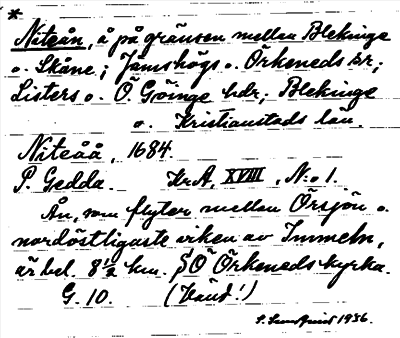 *
Niteån, å på gränsen mellan Blekinge
o. Skåne; Jämshögs o. Örkeneds sr;
Listers o. Ö. Göinge hdr; Blekinge
o. Kristianstads län.
Niteåå, 1684.
P. Gedda. KrA, XVIII, N:o 1.
Ån, som flyter mellan Örsjön o.
nordöstligaste viken av Immeln,
är bel. 8½ km. SÖ Örkeneds kyrka.
G. 10. (Vänd!)
S. 1936.